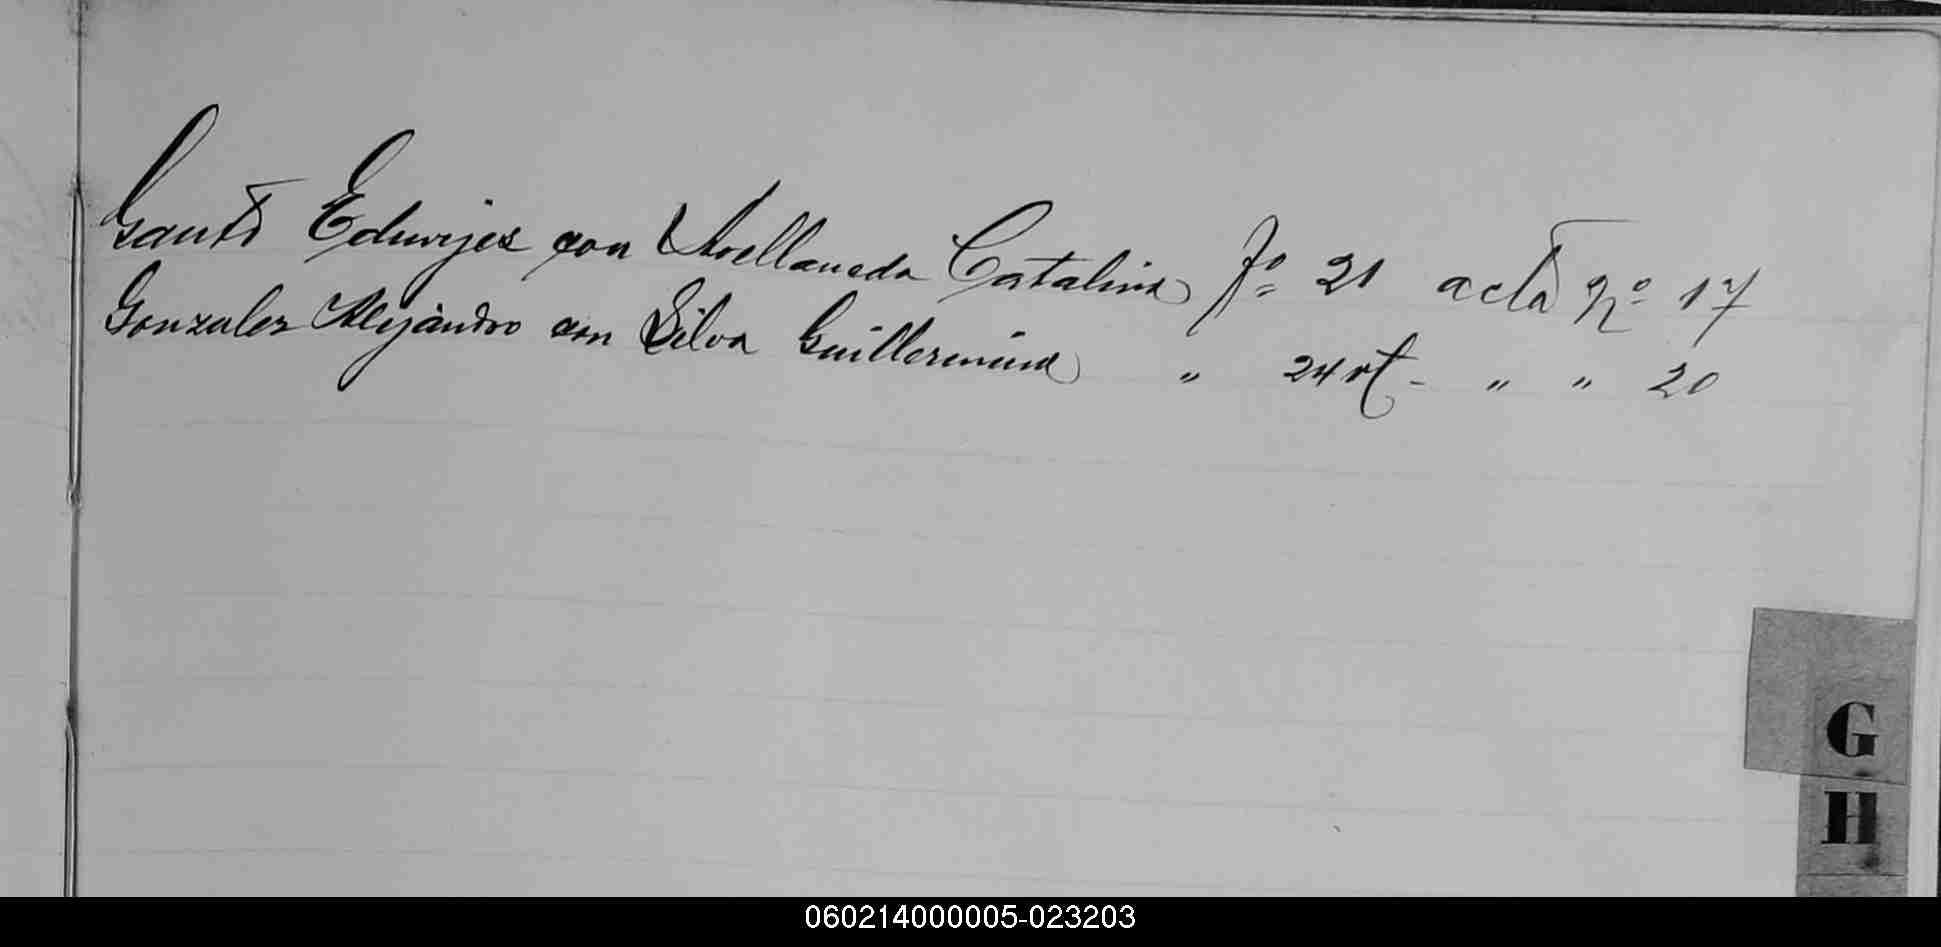 Gauto Eduvijes con Avellaneda Catalina fº 21 acta nº 17
Gonzalez Alejandro con Silva Guillermina " 24 vt. " " 20
G
H
060214000005-023203